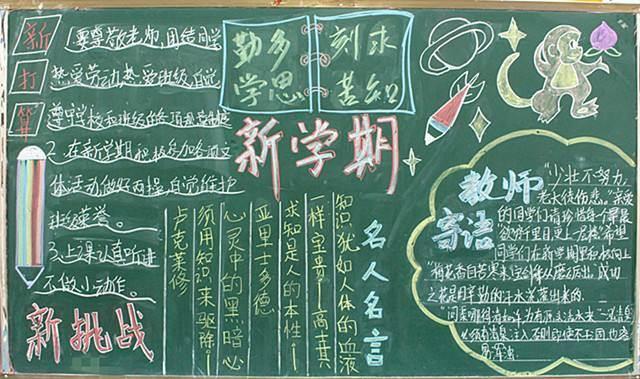 新
打
算
1.要尊敬老师,团结同学
热爱劳动热爱班级,自觉
遵守学校和班级的各项规章制度
2.在新学期积极参加各项
体活动做好两操,自觉维护
班级荣誉。
3.上课认真听讲
不做小动作。
新挑战
勤多
学思
刻求
苦知
新学期
名人名言
知识犹如人体的血液
一样宝贵——高士其
求知是人的本性——
亚里士多德
心灵中的黑暗必
须用知识来驱除——
卢克莱修
教师
寄语
"少壮不努力,
老大徒伤悲。"亲爱
的同学们请珍惜每
"欲穷千里目更上一层楼"希望
同学们在新学期里
"梅花香自苦寒来,宝剑锋从磨砺出。成功
之花是用辛勤的汗水浇灌出来的.
"问渠哪得清如许为有源头活水来"